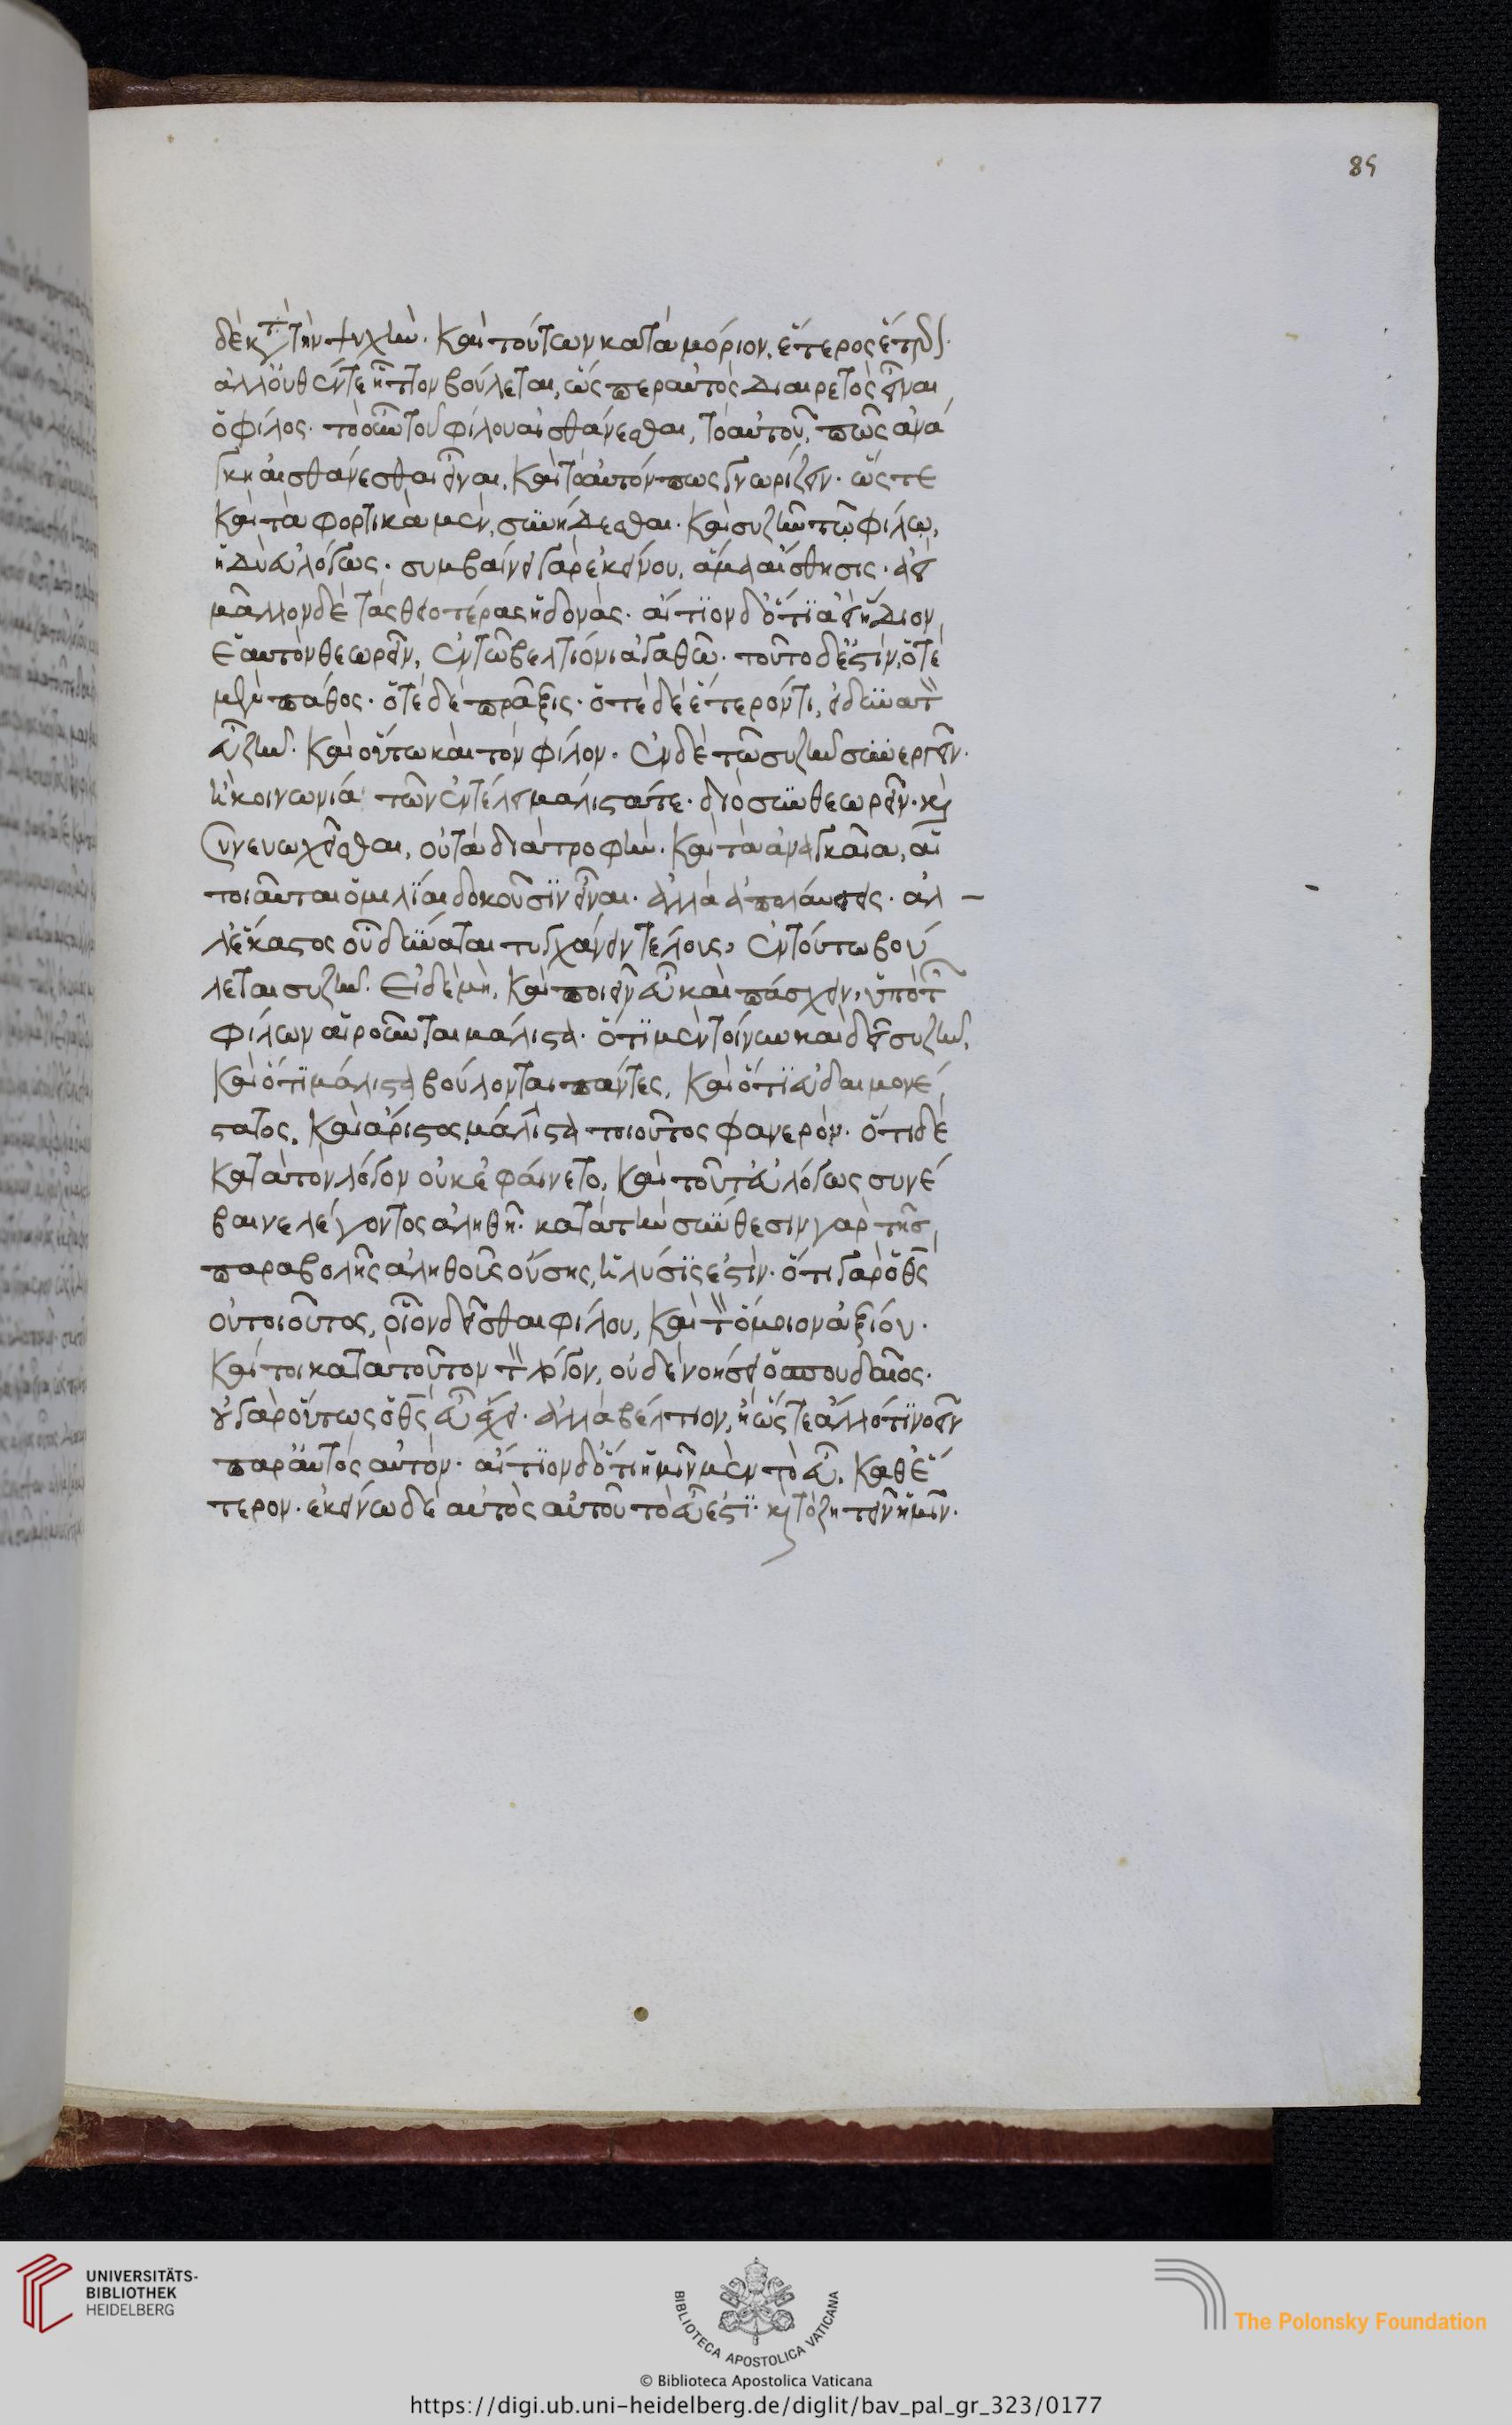 85
δὲ κατὰ τὴν ψυχήν. καὶ τούτων κατὰ μόριον, ἕτερος ἑτέρου.
ἀλλ' οὐθέντε ἧττον βούλεται, ὥσπερ αὐτὸς διαιρετὸς εἶναι
ὁ φίλος. τὸ οὖν τοῦ φίλου αἰσθάνεσθαι, τὸ αὐτοῦ, πως ἀνά
γκη αἰσθάνεσθαι εἶναι, καὶ τὸ αὐτόν πως γνωρίζειν. ὥστε
καὶ τὰ φορτικὰ μὲν, συνήδεσθαι. καὶ συζῆν τῷ φίλῳ,
ἡδὺ εὐλόγως. συμβαίνει γὰρ ἐκείνου, ἅμα αἴσθησις. ἀεὶ
μᾶλλον δὲ τὰς θειοτέρας ἡδονάς. αἴτιον δ' ὅτι ἀεὶ ἥδιον
ἑαυτὸν θεωρεῖν, ἐν τῷ βελτίονι ἀγαθῷ. τοῦτο δ' ἐστὶν, ὁτὲ
μὲν πάθος. ὁτὲ δὲ πρᾶξις. ὁτὲ δὲ ἕτερόν τι, εἰ δ' αὐτὸν
εὖ ζῆν. καὶ οὕτω καὶ τὸν φίλον. ἐν δὲ τῷ συζῆν συνεργεῖν.
ἡ κοινωνία τῶν ἐν τέλει μάλιστά γε. διὸ συνθεωρεῖν. καὶ
συνευωχεῖσθαι, οὐ τὰ διὰ τροφὴν. καὶ τὰ ἀναγκαῖα, αἱ
τοιαῦται ὁμιλίαι δοκοῦσιν εἶναι. ἀλλὰ ἀπολαύσεις. ἀλ –
λ' ἕκαστος οὗ δύναται τυγχάνειν τέλους, ἐν τούτῳ βού
λεται συζῆν. εἰ δὲ μὴ, καὶ ποιεῖν εὖ καὶ πάσχειν, ὑπὸ τῶν
φίλων αἱροῦνται μάλιστα. ὅτι μὲν τοίνυν καὶ δεῖ συζῆν,
καὶ ὅτι μάλιστα βούλονται πάντες, καὶ ὅτι εὐδαιμονέ
στατος, καὶ ἄριστος μάλιστα τοιοῦτος φανερόν. ὅτι δὲ
κατὰ τὸν λόγον οὐκ ἐφαίνετο, καὶ τοῦτ' εὐλόγως συνέ
βαινε λέγοντος ἀληθῆ. κατὰ τὴν σύνθεσιν γὰρ τῆς
παραβολῆς ἀληθοῦς οὔσης, ἡ λύσις ἐστίν. ὅτι γὰρ ὁ θεὸς
οὐ τοιοῦτος, οἷον δεῖσθαι φίλου, καὶ τὸν ὅμοιον ἀξιοῖ.
καί τοι κατὰ τοῦτον τὸν λόγον, οὐδὲ νοήσει ὁ σπουδαῖος.
οὐ γὰρ οὕτως ὁ θεὸς εὖ ἔχει. ἀλλὰ βέλτιον, ἢ ὥστε ἄλλό τι νοεῖν
παρ' αὐτὸς αὐτόν. αἴτιον δ' ὅτι ἡμῖν μὲν τὸ εὖ, καθ' ἕ
τερον. ἐκείνῳ δὲ αὐτὸς αὑτοῦ τὸ εὖ ἐστί. καὶ τὸ ζητεῖν ἡμῖν.
UNIVERSITÄTS-
BIBLIOTHEK
HEIDELBERG
BIBLIOTECA APOSTOLICA VATICANA
The Polonsky Foundation
© Biblioteca Apostolica Vaticana
https://digi.ub.uni-heidelberg.de/diglit/bav_pal_gr_323/0177